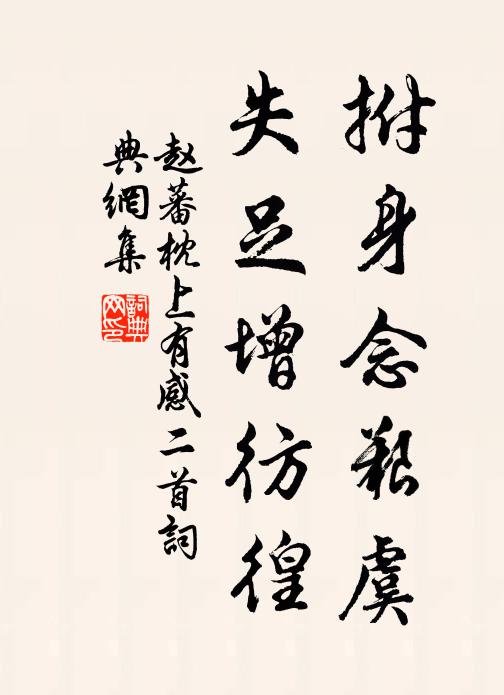 拊身念艱虞
失足增彷徨
赵蕃枕上有感二首詞
典網集
詞典
网印